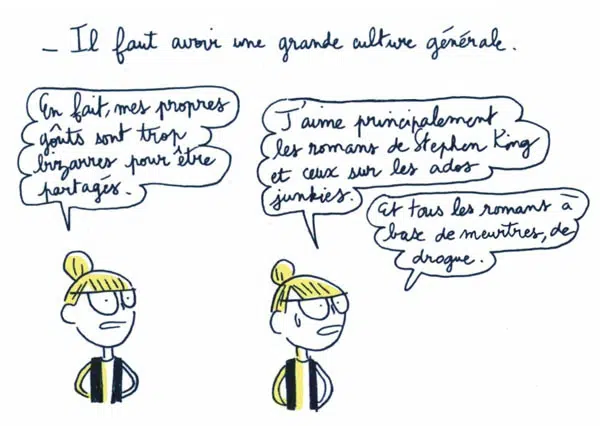 _ Il faut avoir une grande culture générale.
En fait, mes propres
goûts sont trop
bizarres pour être
partagés.
J'aime principalement
les romans de Stephen King
et ceux sur les ados
junkies.
Et tous les romans à
base de meurtres, de
drogue.